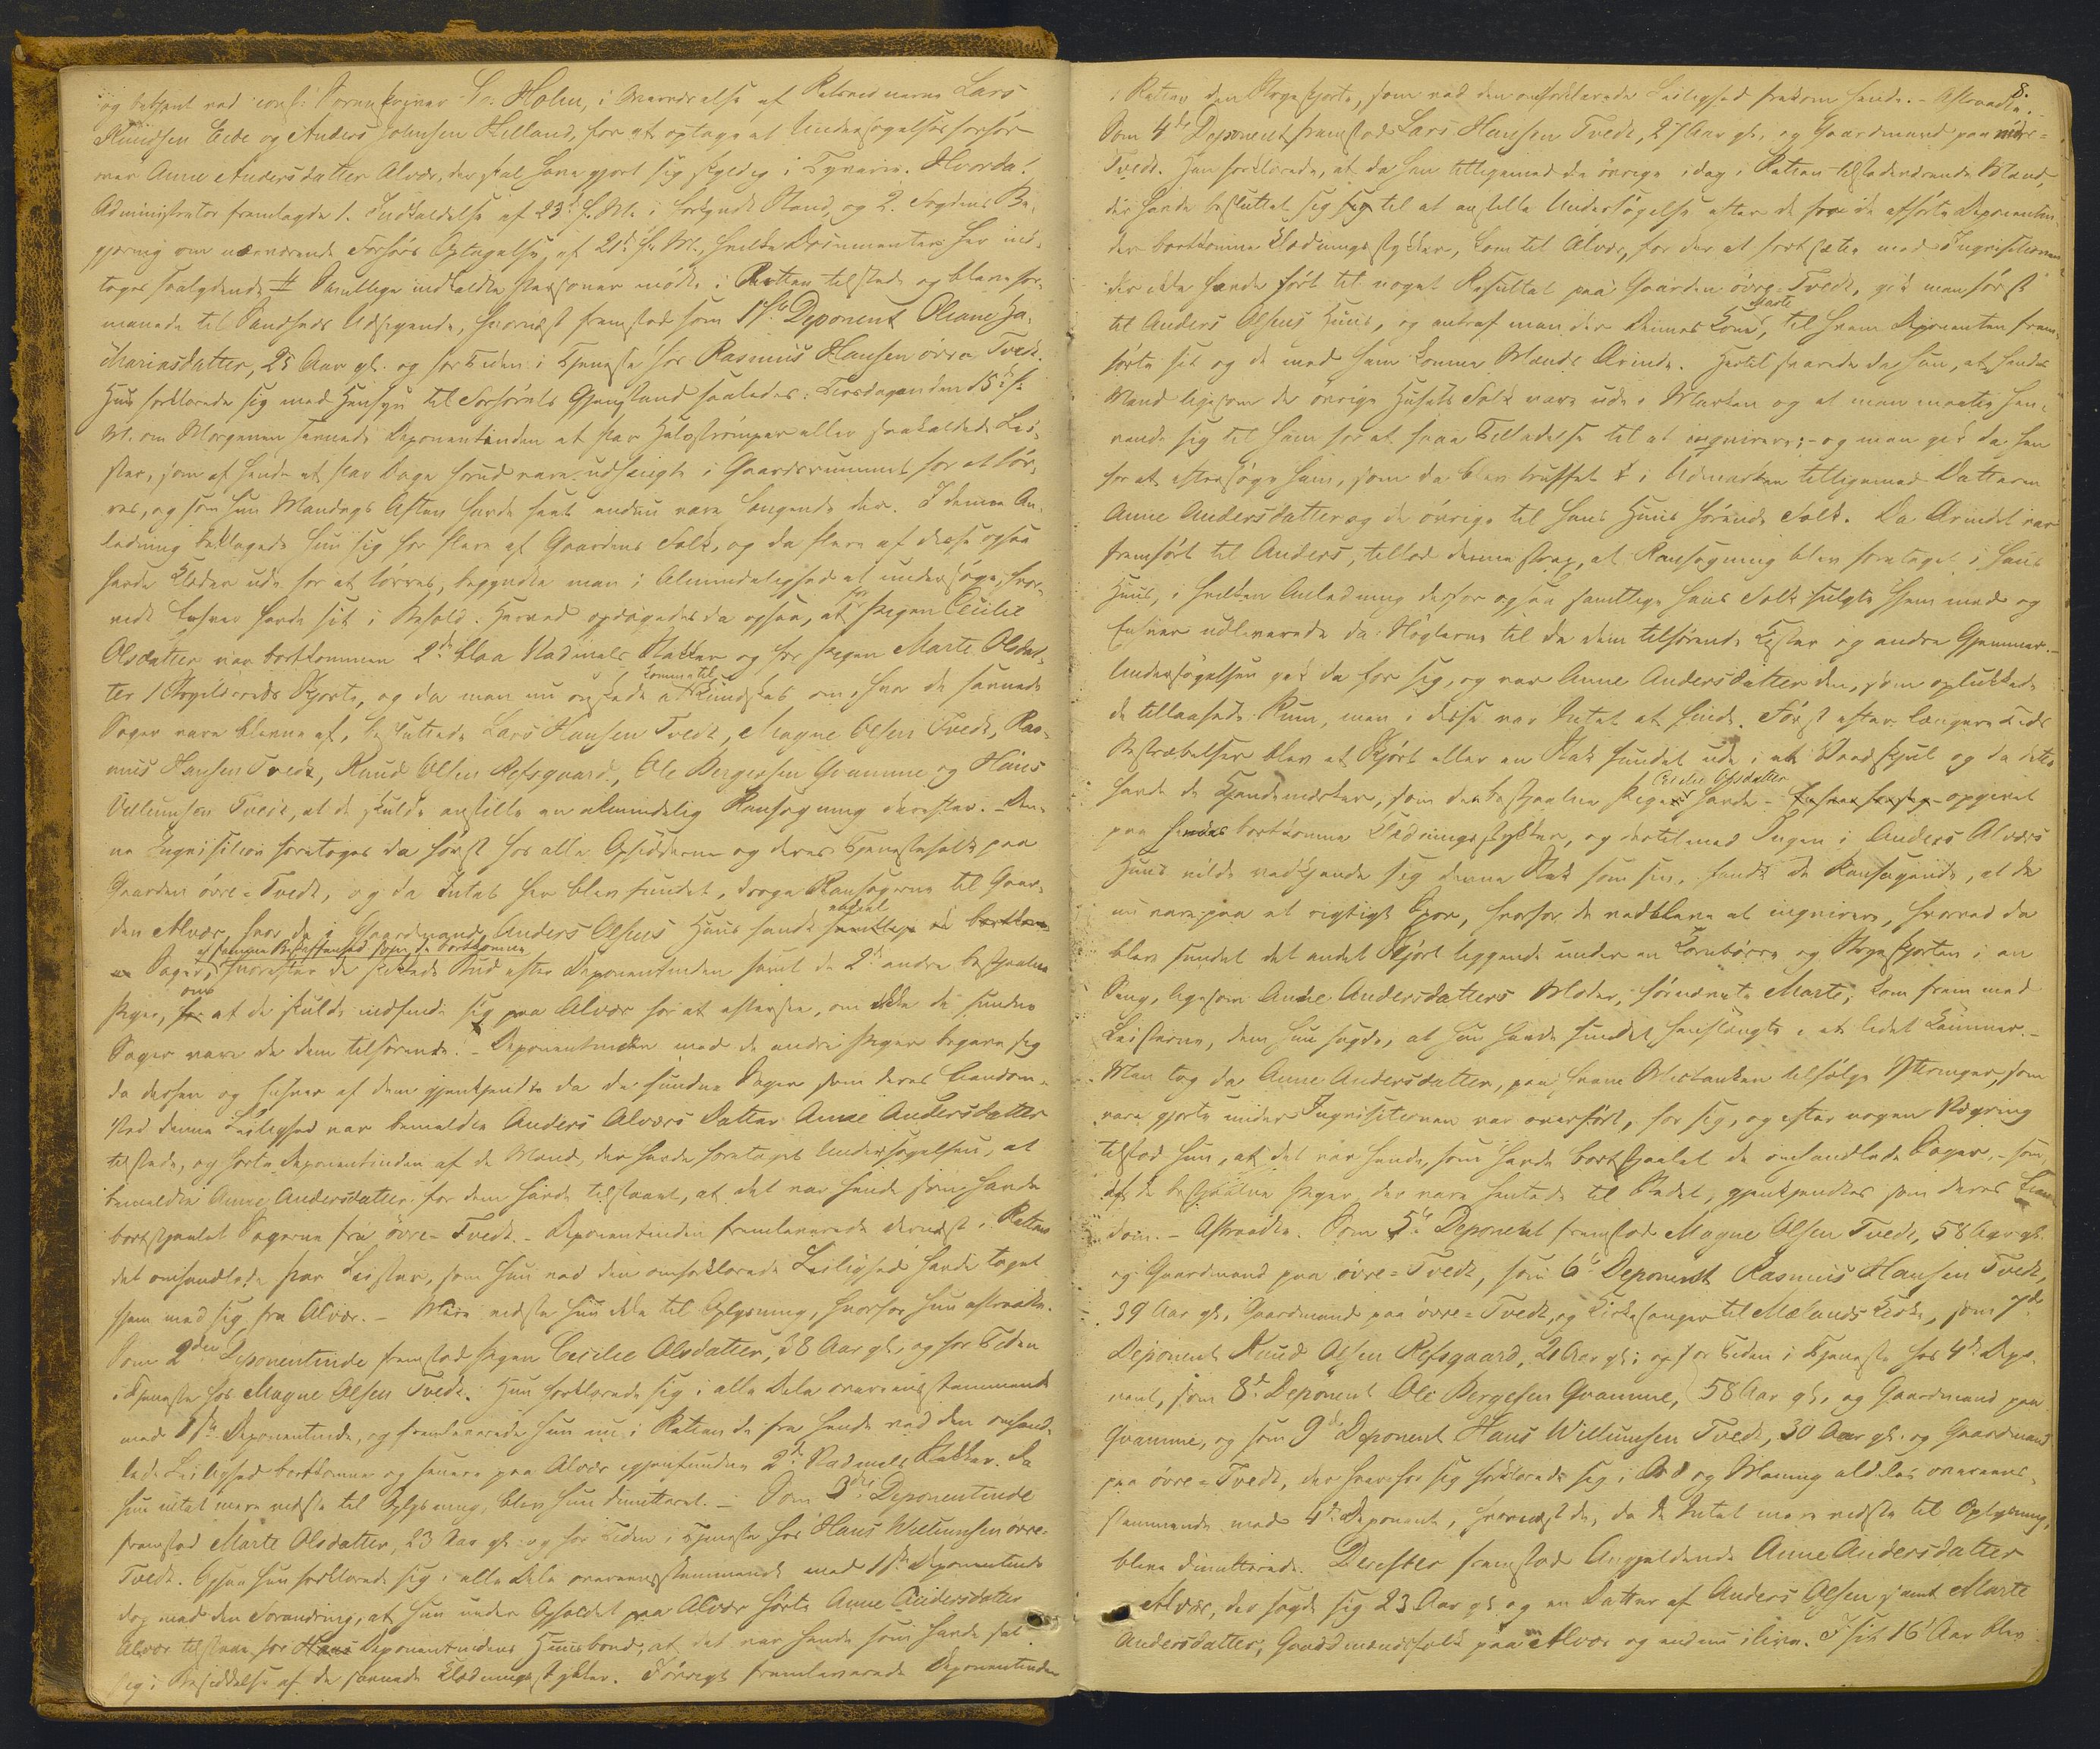 og betjent ved const: Sorenskriver Hr. Holm, i Overværelse af Retsvidnerne Lars
Knudsen Eide og Anders Johnsen Helland, for at optage et Undersøgelsesforhør
over Anne Andersdatter Alvær, der skal have gjort sig skyldig i Tyverie. Hvorda!
Administrator fremlagde 1. Indkaldelse af 23de f. M. i forkyndt Stand, og 2. Fogdens Be-
gjæring om nærværende Forhørs Optagelse, af 21de f. M., hvilke Documenter her ind-
tages saalydende # Samtlige indkaldte Personer mødte i Retten tilstede og bleve for-
manede til Sandheds Udsigende, hvornæst fremstod som 1ste Deponent Oliane Ja-
Mariasdatter, 25 Aar gl. og for Tiden i Tjeneste hos Rasmus Hansen øvre Tvedt.
Hun forklarede sig med Hensyn til Forhørets Gjenstand saaledes: Tirsdagen den 15de f.
M. om Morgenen savnede Deponentinden et Par Halvstrømper eller saakaldede Lei-
ster, som af hende et Par Dage forud vare udhængte i Gaardsrummet for at tør-
res, og som hun Mandags Aften havde seet endnu vare hængende der. I denne An-
ledning beklagede hun sig for flere af Gaardens Folk, og da flere af disse ogsaa
havde Klæder ude for at tørres, begyndte man i Almindelighed at undersøge, hvor-
vidt Enhver havde sit i Behold. Herved opdagedes da ogsaa, at for Pigen Cecilie
Olsdatter var bortkommen 2de blaa Vadmels Stakker og for Pigen Marte Olsdat-
ter 1 Skjorte, og da man nu ønskede at komme til Kundskab om, hvor de savnede
Sager vare blevne af, besluttede Lars Hansen Tvedt, Magne Olsen Tvedt, Ras-
mus Hansen Tvedt, Knud Olsen Refsgaard, Ole Bergesen Qvamme og Hans
Villumsen Tvedt, at de skulde anstille en almindelig Ransagning derefter. Den-
ne Inqvisition foretoges da først hos alle Opsidderne og deres Tjenestefolk paa
Gaarden øvre-Tvedt, og da Intet her blev fundet, droge Ransagerne til Gaar-
den Alvær, hvor de i Gaardmand Anders Olsens Huus fandt samtlige de bortkom-
ne Sager, af samme Beskaffenhed som de bortkomne hvorefter de skikkede Bud efter Deponentinden samt de 2de andre bestjaalne
Piger, om at de skulde indfinde sig paa Alvær for at eftersee, om ikke de fundne
Sager vare de dem tilhørende. - Deponentinden med de andre Piger begave sig
da derhen og Enhver af dem gjenkjendte da de fundne Sager som deres Eiendom.
Ved denne Leilighed var bemeldte Anders Alværs Datter Anne Andersdatter
tilstede, og hørte Deponentinden af de Mænd, der havde foretaget Undersøgelsen, at
bemeldte Anne Andersdatter for dem havde tilstaaet, at det var hende som havde
bortstjaalet Sagerne fra øvre-Tvedt. - Deponentinden fremleverede dernæst i Retten
det omhandlede Par Leister, som hun ved den omforklarede Leilighed havde taget
hjem med sig fra Alvær. - Mere vidste hun ikke til Oplysning, hvorfor hun aftraadte.
Som 2den Deponentinde fremstod Pigen Cecilie Olsdatter, 38 Aar gl, og for Tiden
i Tjeneste hos Magne Olsen Tvedt. Hun forklarede sig i alle Dele overeensstemmende
med 1ste Deponentinde, og fremleverede hun nu i Retten de fra hende ved den omhand-
lede Leilighed bortkomne og senere paa Alvær igjenfundne 2de Vadmels Stakker. Da
hun intet mere vidste til Oplysning, blev hun dimitteret. - Som 3die Deponentinde
fremstod Marte Olsdatter, 23 Aar gl: og for Tiden i Tjeneste hos Hans Willumsen øvre-
Tvedt. Ogsaa hun forklarede sig i alle Dele overeensstemmende med 1ste Deponentinde
dog med den Forandring, at hun under Opholdet paa Alvær hørte Anne Andersdatter
Alvær tilstaae for Hans Deponentindens Huusbond, at det var hende som havde sat
sig i Besiddelse af de savnede Klædningsstykker. Iøvrigt fremleverede Deponentinden
8.
i Retten den Skjorte, som ved den omforklarede Leilighed frakom hende. - Aftraadte.
Som 4de Deponent fremstod Lars Hansen Tvedt, 27 Aar gl, og Gaardmand paa øvre-
Tvedt. Han forklarede, at da han tilligemed de øvrige idag i Retten tilstedeværende Mænd,
der havde besluttet sig til at anstille Undersøgelse efter de fra de afhørte Deponentin-
der bortkomne Klædningsstykker, kom til Alvær, for der at fortsætte med Inqvisitionen
der ikke havde ført til noget Resultat paa Gaarden øvre-Tvedt, gik man først
til Anders Olsens Huus, og antraf man der Dennes Kone Marte, til hvem Deponenten frem-
førte sit og de med ham komne Mænds Ærinde. Hertil svarede da hun, at hendes
Mand ligesom de øvrige Husets Folk vare ude i Marken og at man maatte hen-
vende sig til ham for at faae Tilladelse til at inqvirere; - og man gik da hen
for at eftersøge ham, som da blev truffet i Udmarken tilligemed Datteren
Anne Andersdatter og de øvrige til hans Huus hørende Folk. Da Ærindet var
fremført til Anders, tillod denne strax, at Ransagning blev foretaget i hans
Huus, i hvilken Anledning derfor ogsaa samtlige hans Folk fulgte hjem med og
Enhver udleverede da Nøglerne til de dem tilhørende Kister og andre Gjemmer. -
Undersøgelsen gik da for sig, og var Anne Andersdatter den, som oplukkede
de tillaasede Rum, men i disse var Intet at finde. Først efter længere Tids
Bestræbelser blev et Skjørt eller en Stak fundet ude i et Vedskjul og da dette
havde de Kjendemærker, som den bestjaalne Pige Cecilie Olsdatter havde opgivet
paa hendes bortkomne Klædningsstykker, og dertilmed Ingen i Anders Alværs
Huus vilde vedkjende sig denne Stak som sin, fandt de Ransagende, at de
nu vare paa et rigtigt Spor, hvorfor de vedbleve at inqvirere, hvorved da
blev fundet det andet Skjørt liggende under en Tørnbørre og Skjorten i en
Seng, ligesom Anne Andersdatters Moder, førnævnte Marte, kom frem med
Leisterne, dem hun sagde, at hun havde fundet henslængte i et lidet Kammer. -
Man tog da Anne Andersdatter, paa hvem Mistanken ifølge Yttringer, som
vare gjorte under Inqvisitionen var overført, for sig, og efter nogen Vægring
tilstod hun, at det var hende, som havde bortstjaalet de omhandlede Sager, - som
af de bestjaalne Piger, der vare hentede til Stedet, gjenkjendtes som deres Eien-
dom. - Aftraadte. Som 5te Deponent fremstod Magne Olsen Tvedt, 58 Aar gl.
og Gaardmand paa øvre-Tvedt, som 6te Deponent Rasmus Hansen Tvedt,
39 Aar gl, Gaardmand paa øvre-Tvedt, og Kirkesanger til Mælands Kirke, som 7de
Deponent Knud Olsen Refsgaard, 21 Aar gl; og for Tiden i Tjeneste hos 4de Depo-
nent, som 8de Deponent Ole Bergesen Qvamme, 58 Aar gl, og Gaardmand paa
Qvamme, og som 9de Deponent Hans Willumsen Tvedt, 30 Aar gl. og Gaardmand
paa øvre-Tvedt, der hver for sig forklarede sig i Ord og Mening aldeles overeens-
stemmende med 4de Deponent, hvornæst de, da de Intet mere vidste til Oplysning,
bleve dimitterede. Derefter fremstod Angjældende Anne Andersdatter
Alvær, der sagde sig 23 Aar gl og en Datter af Anders Olsen samt Marte
Andersdatter, Gaardmandsfolk paa Alvær og endnu ilive. I sit 16de Aar blev